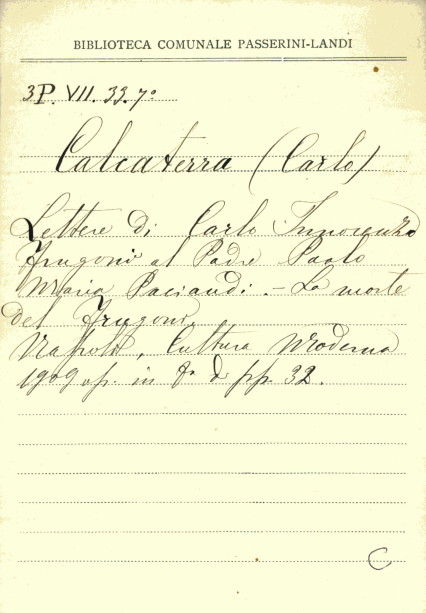 BIBLIOTECA COMUNALE PASSERINI-LANDI
3P. VII. 33. 7º
Calcaterra (Carlo)
Lettere di Carlo Innocenzo
Frugoni al Padre Paolo
Maria Paciaudi. - La morte
del Frugoni.
Napoli, Cultura Moderna
1909 op. in 8º pp. 32.
C